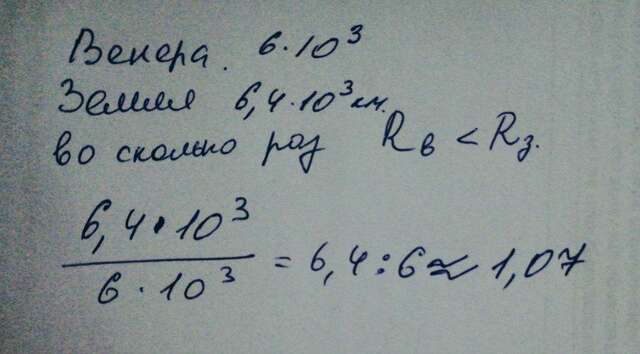 Венера. 6·10³
Земля 6,4·10³ км.
во сколько раз Rв < Rз.
6,4·10³
6·10³
= 6,4:6≈1,07